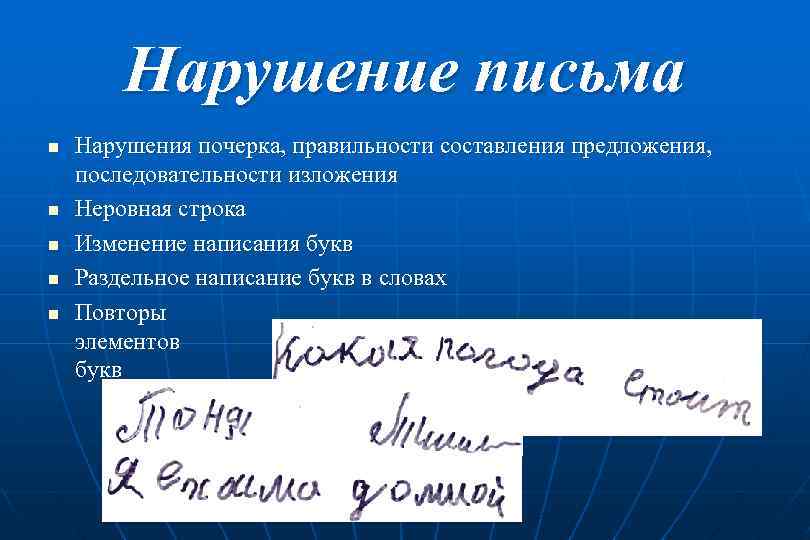 Нарушение письма
Нарушения почерка, правильности составления предложения,
последовательности изложения
Неровная строка
Изменение написания букв
Раздельное написание букв в словах
Повторы
элементов
букв
Какая погода стоит
Тоня
Я ехала домной